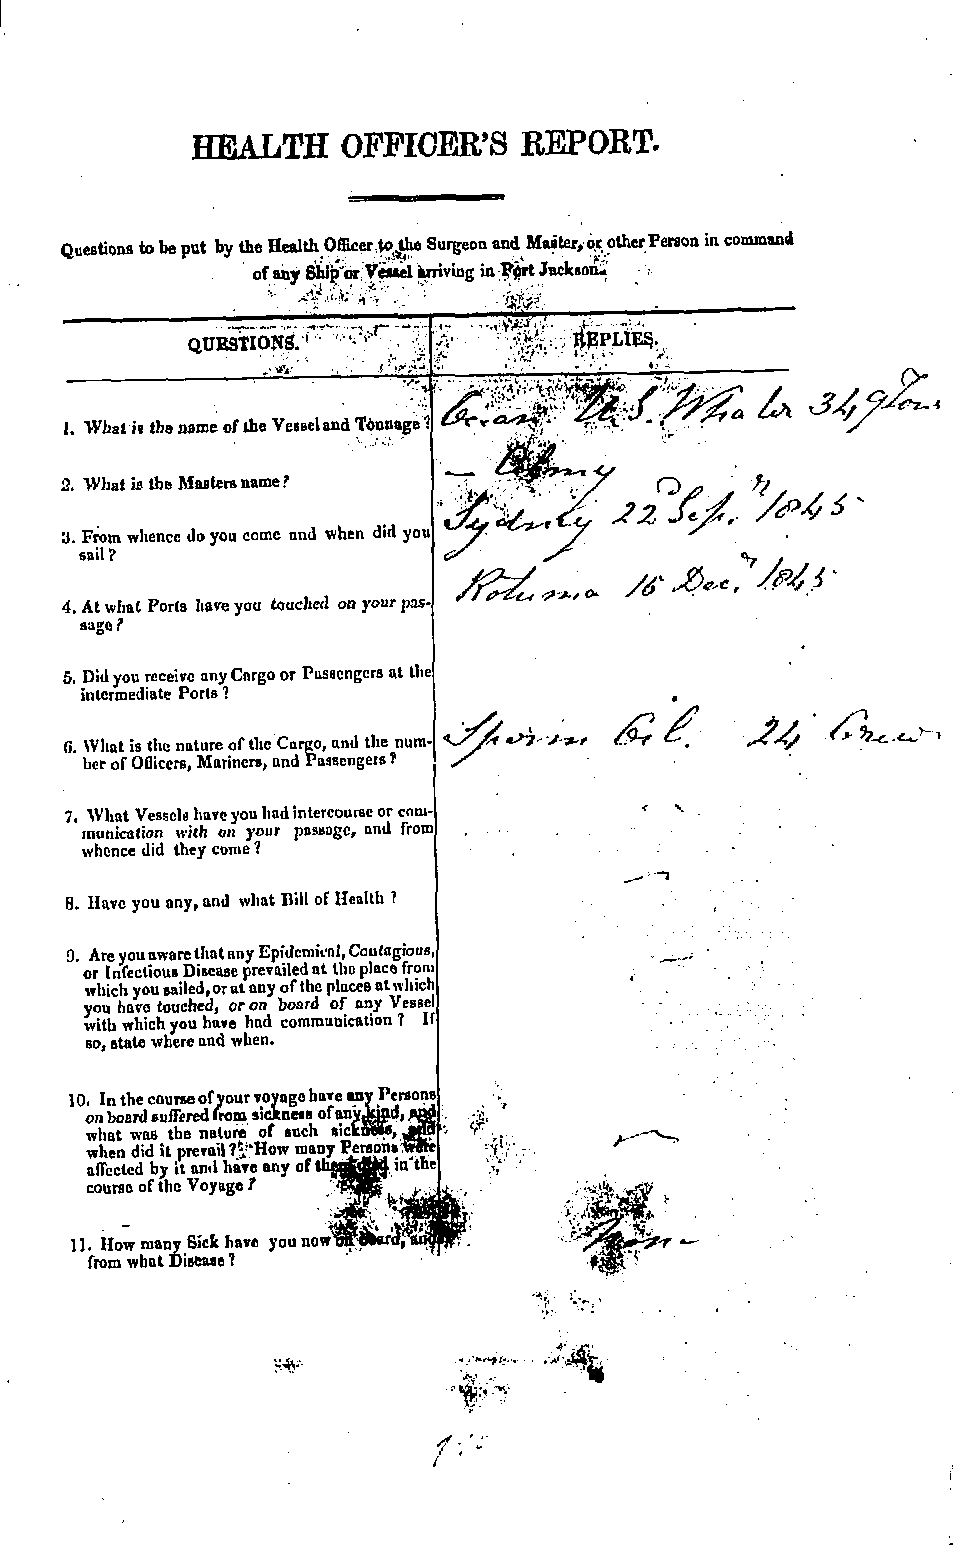 HEALTH OFFICER'S REPORT.
Questions to be put by the Health Officer to the Surgeon and Master, or other Person in command
of any Ship or Vessel arriving in Port Jackson.
QUESTIONS. REPLIES.
1. What is the name of the Vessel and Tonnage? U.S. Whaler 349 Tons
2. What is the Masters name? —
3. From whence do you come and when did you Sydney 22d Sepr. 1845
sail?
4. At what Ports have you touched on your pas- Rotuma 16 Decr. 1845
sage?
5. Did you receive any Cargo or Passengers at the
intermediate Ports?
6. What is the nature of the Cargo, and the num- Sperm Oil. 24 Crew
ber of Officers, Mariners, and Passengers?
7. What Vessels have you had intercourse or com-
munication with on your passage, and from
whence did they come?
8. Have you any, and what Bill of Health?
9. Are you aware that any Epidemical, Contagious,
or Infectious Disease prevailed at the place from
which you sailed, or at any of the places at which
you have touched, or on board of any Vessel
with which you have had communication? If
so, state where and when.
10. In the course of your voyage have any Persons
on board suffered from sickness of any kind, and
what was the nature of such sickness, and
when did it prevail? How many Persons were
affected by it and have any of them died in the
course of the Voyage?
11. How many Sick have you now on board, and None
from what Disease?